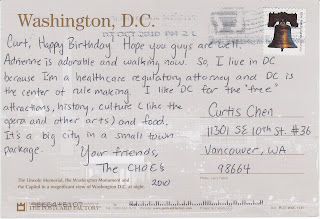 Washington, D.C.
OCT 2010 PM 2 L
Curt, Happy Birthday! Hope you guys are well.
Adrienne is adorable and walking now. So, I live in DC
because I'm a healthcare regulatory attorney and DC is
the center of rule making. I like DC for the "free"
attractions, history, culture (like the
opera and other arts) and food.
It's a big city in a small town
package.
Your friends,
The CHOEs
2010
Curtis Chen
11301 SE 10th St. #36
Vancouver, WA
98664
The Lincoln Memorial, the Washington Monument and
the Capitol in a magnificent view of Washington D.C. at night.
THE POSTCARD FACTORY